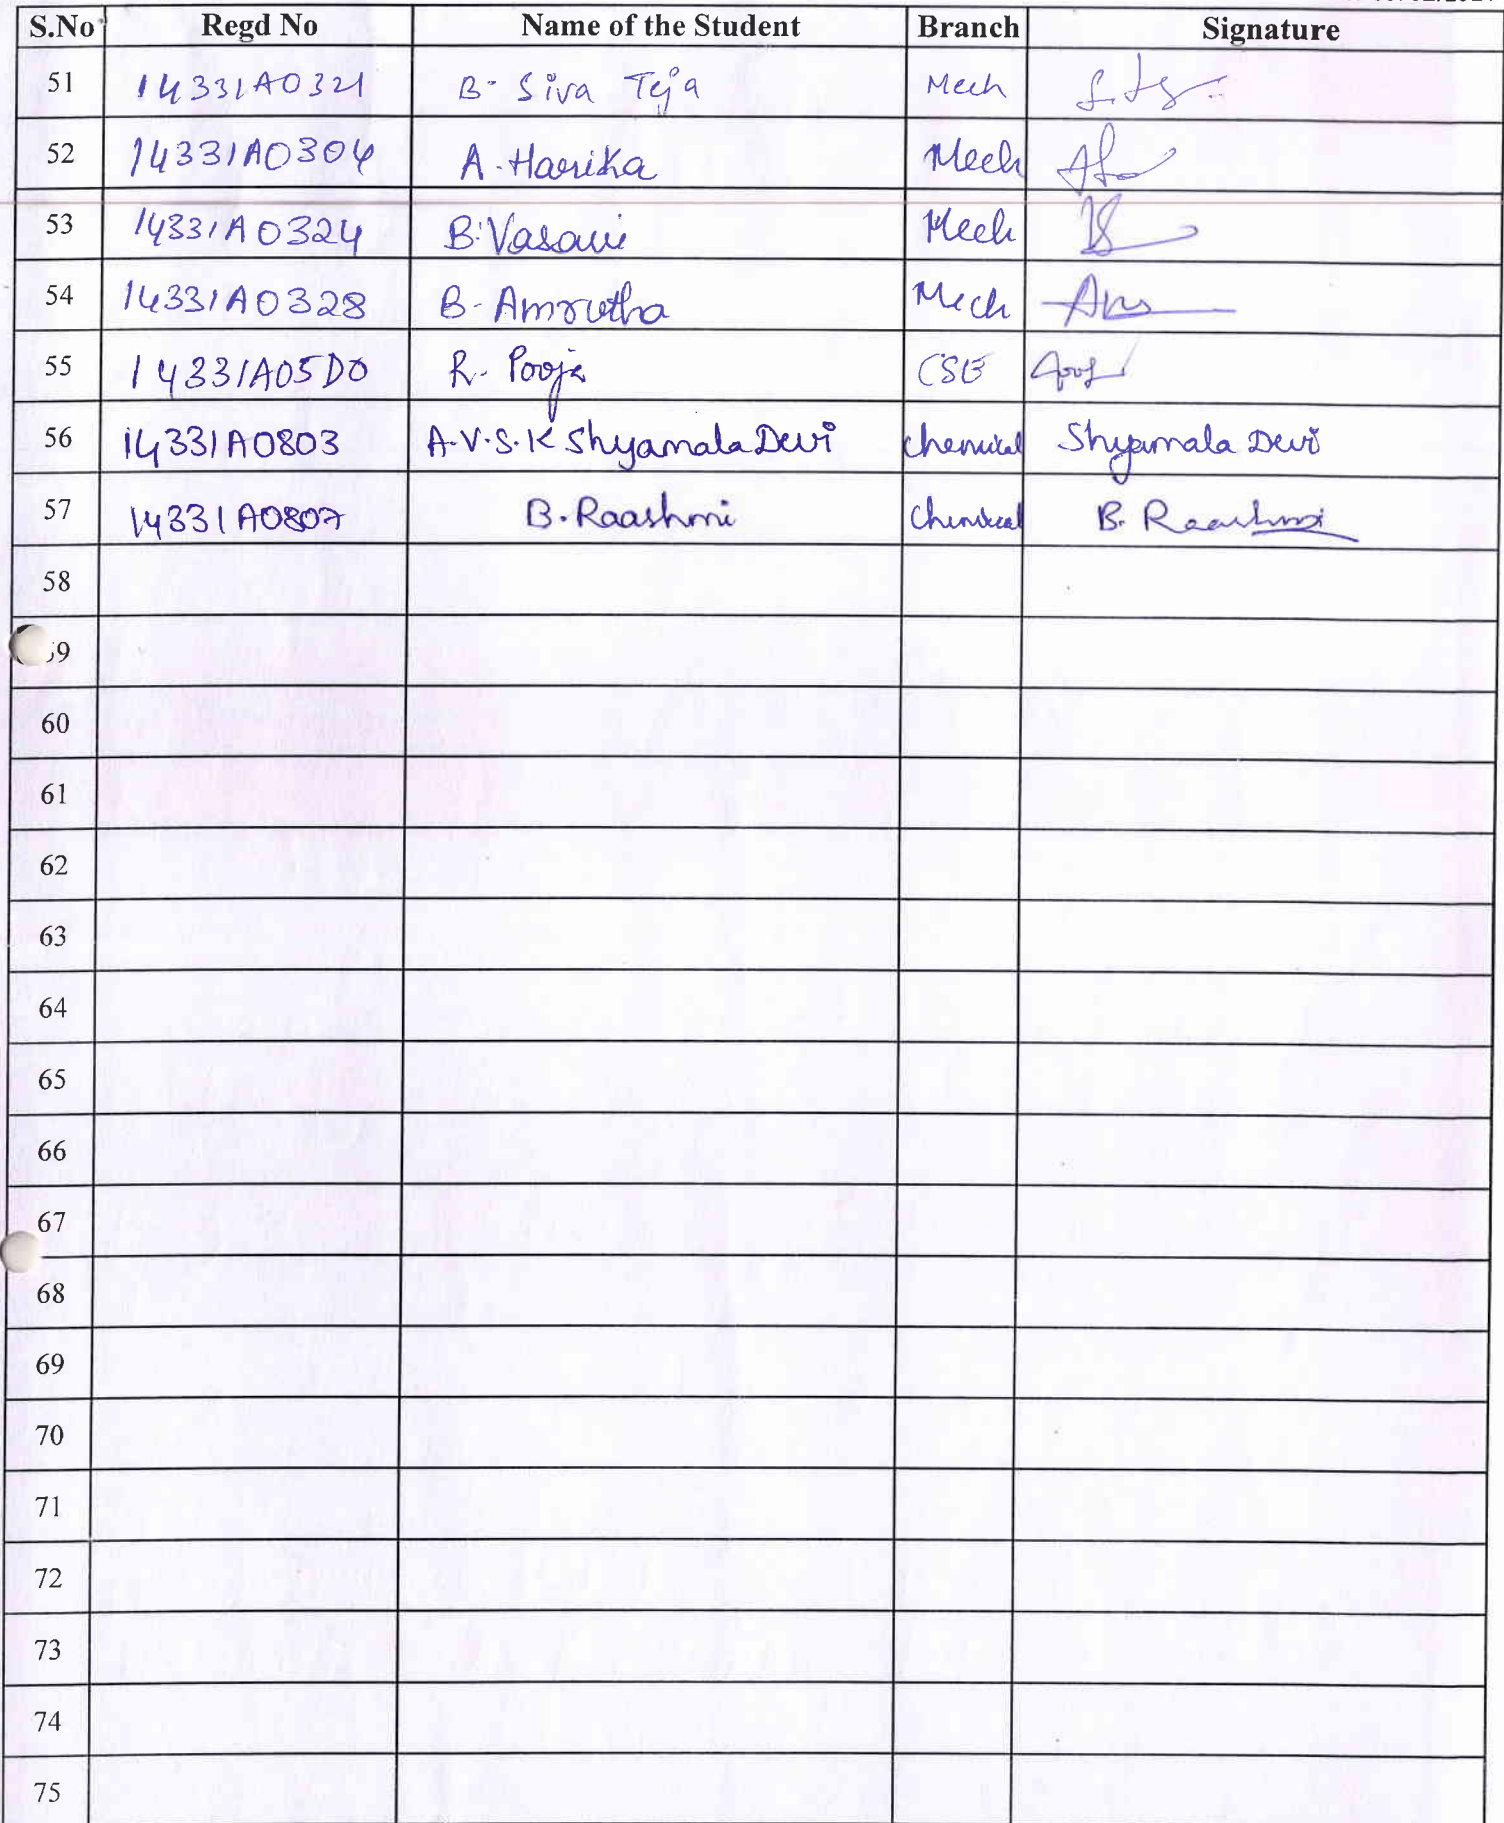 S.No Regd No Name of the Student Branch Signature
51 14331A0321 B. Siva Teja Mech
52 14331A0304 A. Harika Mech
53 14331A0324 B. Vasavi Mech
54 14331A0328 B. Amrutha Mech
55 14331A05D0 R. Pooja CSE
56 14331A0803 A.V.S.K Shyamala Devi chemical Shyamala Devi
57 14331A0807 B. Raashmi Chemical B. Raashmi
58
60
61
62
63
64
65
66
67
68
69
70
71
72
73
74
75